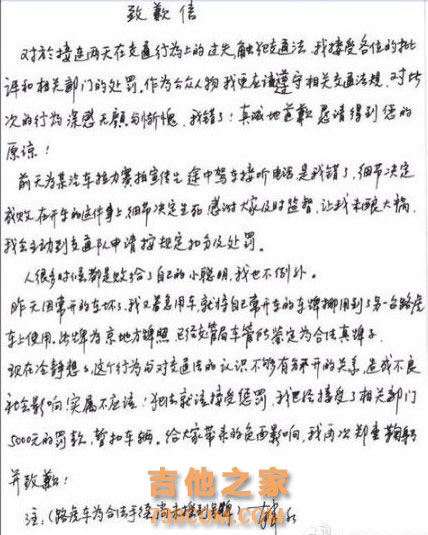 致歉信
对於接连两天在交通行为上的过失触犯交通法,我接受各位的批
评和相关部门的处罚。作为公众人物我更应该遵守相关交通法规,对此
次的行为深感无颜与惭愧,我错了!真诚地道歉恳请得到您的
原谅!
前天为某汽车拉力赛拍宣传片途中驾车接听电话是我错了,细节决定
成败,在开车的这件事上,细节决定生死,感谢大家及时监督,让我未酿大祸,
我会主动到交通队申请按规定扣分及处罚。
人很多时候都是败给了自己的小聪明,我也不例外。
昨天因常开的车坏了,我又着急用车,就将自己常开车的车牌挪用到了另一台路虎
车上使用。此牌为京地方牌照,已经交管局车管所鉴定为合法真牌子。
现在冷静想想,这个行为与对交通法的认识不够有分不开的关系,造成不良
社会影响!实属不应该!犯法就该接受惩罚,我已经接受了相关部门
5000元的罚款,暂扣车辆。给大家带来的负面影响,我再次郑重鞠躬
并致歉!
注:(路虎车为合法手续尚未换到号牌
吉他之家
798COM.COM